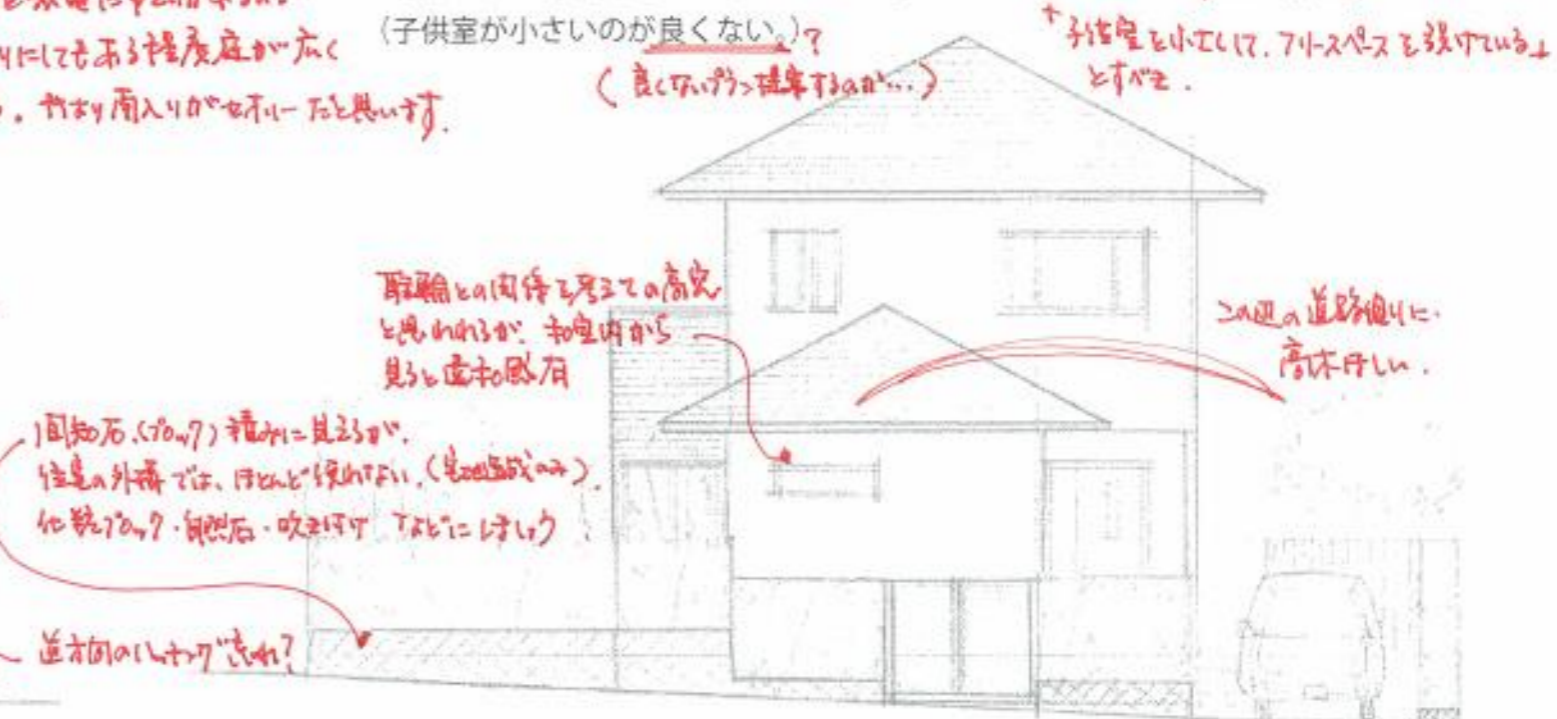 りにしてもある程度庭が広く
。やはり南入りがセオリーだと思います。
(子供室が小さいのが良くない。)?
(良くないプラン提案するのか…)
子供室を小さくして、フリースペースを設けている」
とすべき。
駐輪との関係を考えての高窓
と思われるが、和室内から
見ると違和感有
この辺の道路側に
高木ほしい。
間知石(ブロック)積みに見えるが、
住宅の外構では、ほとんど使わない。(宅地造成のみ)
化粧ブロック・自然石・吹き付け などにしましょう
逆方向のハッチング忘れ?